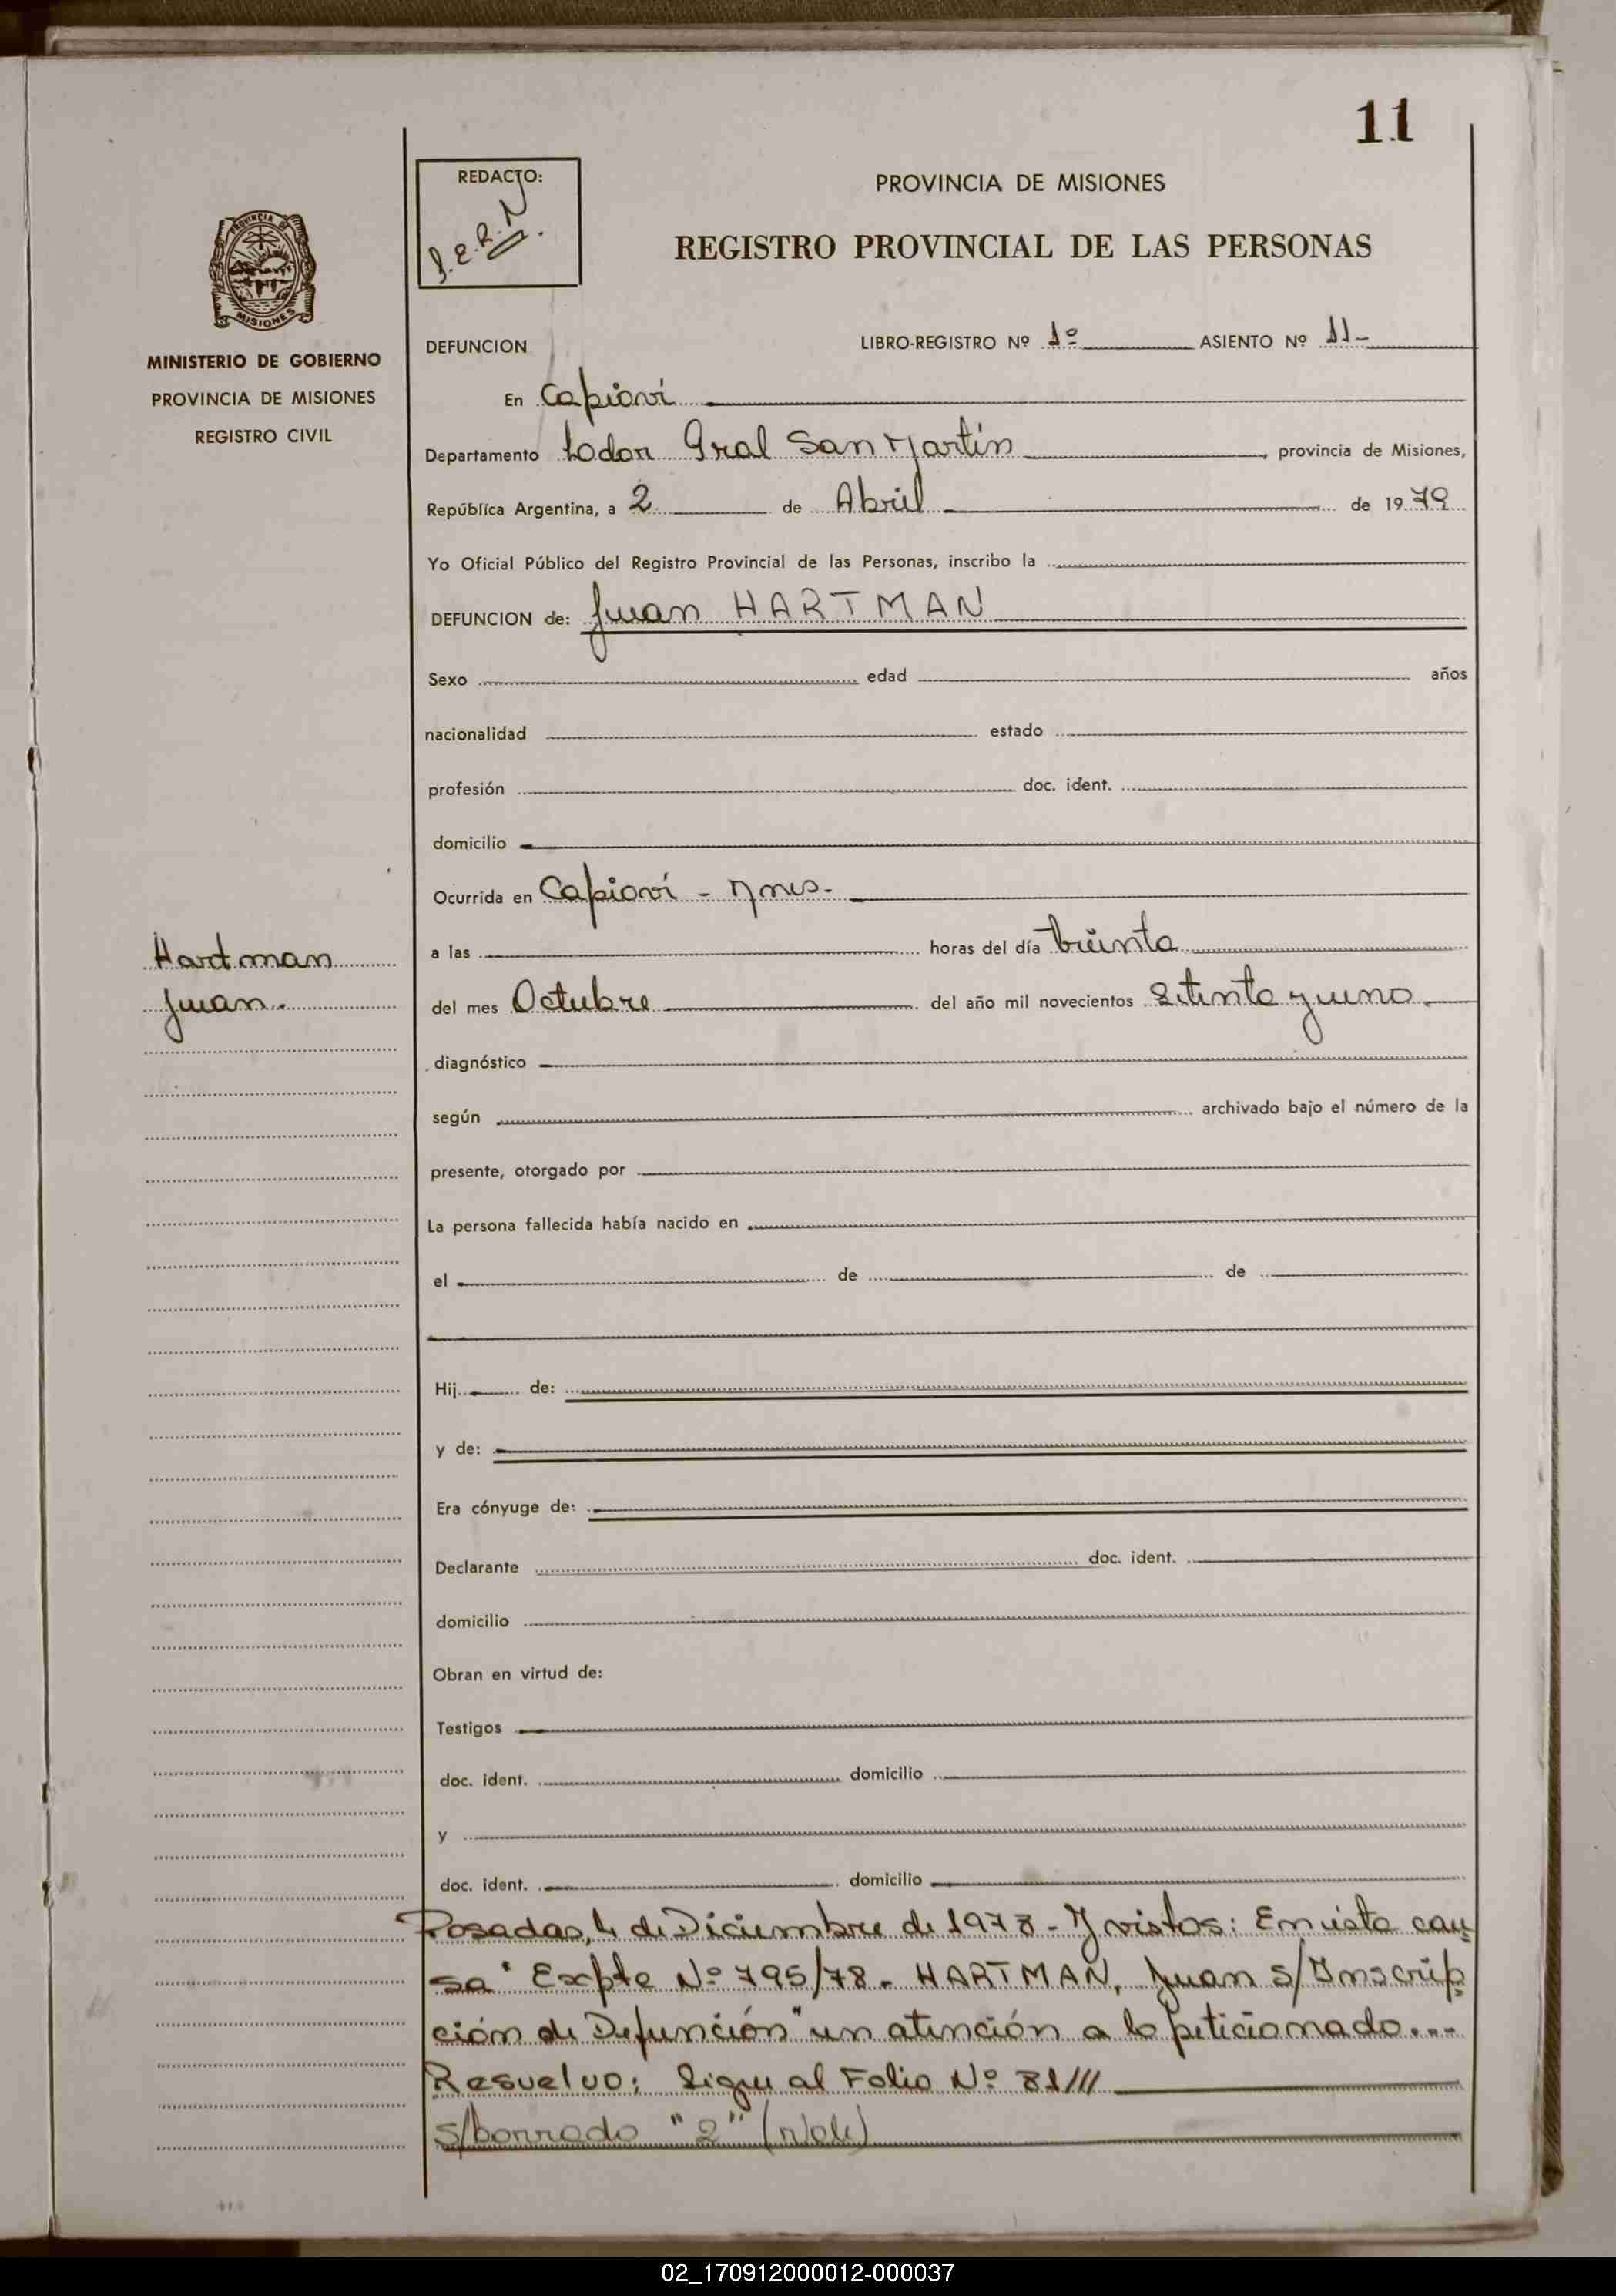 11
REDACTO:
J.E.R.N.
PROVINCIA DE MISIONES
REGISTRO PROVINCIAL DE LAS PERSONAS
PROVINCIA DE
MISIONES
MINISTERIO DE GOBIERNO
PROVINCIA DE MISIONES
REGISTRO CIVIL
DEFUNCION LIBRO-REGISTRO Nº 1º ASIENTO Nº 11-
En Capioví
Departamento Lodor Gral San Martín, provincia de Misiones,
República Argentina, a 2 de Abril de 1979
Yo Oficial Público del Registro Provincial de las Personas, inscribo la
DEFUNCION de: Juan HARTMAN
Sexo edad años
nacionalidad estado
profesión doc. ident.
domicilio
Ocurrida en Capioví - Mnes.
Hartman
Juan.
a las horas del día treinta
del mes Octubre del año mil novecientos setenta y uno.
diagnóstico
según archivado bajo el número de la
presente, otorgado por
La persona fallecida había nacido en
el de de
Hij de:
y de:
Era cónyuge de:
Declarante doc. ident.
domicilio
Obran en virtud de:
Testigos
doc. ident. domicilio
y
doc. ident. domicilio
Posadas, 4 de Diciembre de 1978 - Y vistos: En esta cau
sa" Expte Nº 795/78. HARTMAN, Juan s/Inscrip
ción de Defunción" en atención a lo peticionado...
Resuelvo: Sigue al Folio Nº 81///
s/borrado "2" (vale)
02_170912000012-000037